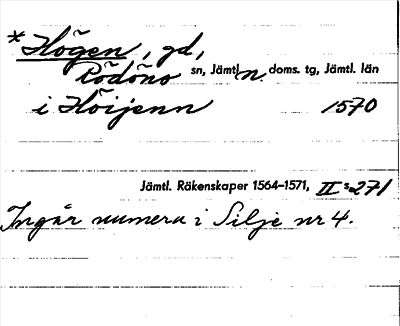 *Högen, gd,
Rödöns sn, Jämtl. n. doms. tg, Jämtl. län
i Höijenn 1570
Jämtl. Räkenskaper 1564–1571, II s. 271
Ingår numera i Silje nr 4.